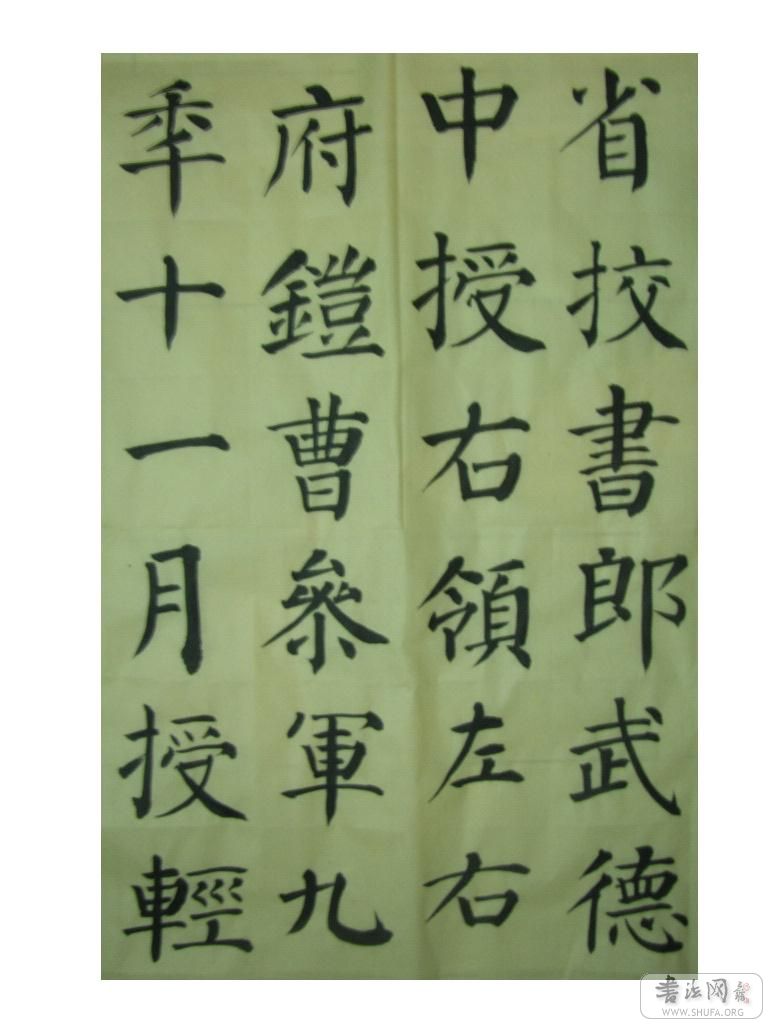 省挍書郎武德
中授右領左右
府鎧曹叅軍九
秊十一月授輕
書法网
WWW.SHUFA.ORG